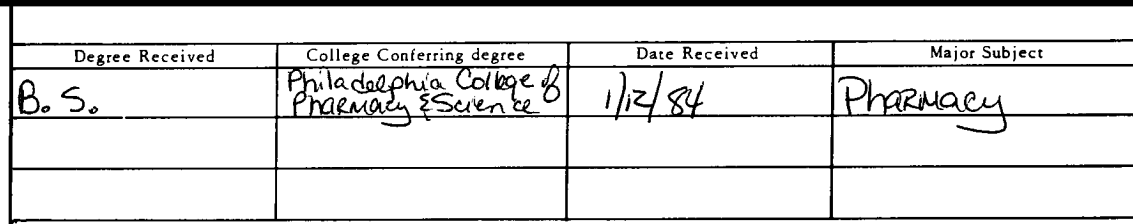 Degree Received College Conferring degree Date Received Major Subject
B. S. Philadelphia College of Pharmacy & Science 1/12/84 Pharmacy